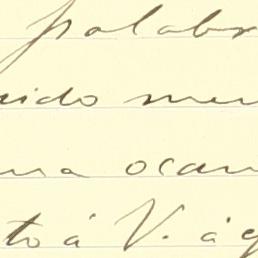 palabr
uido men
una ocan
to á V. á q